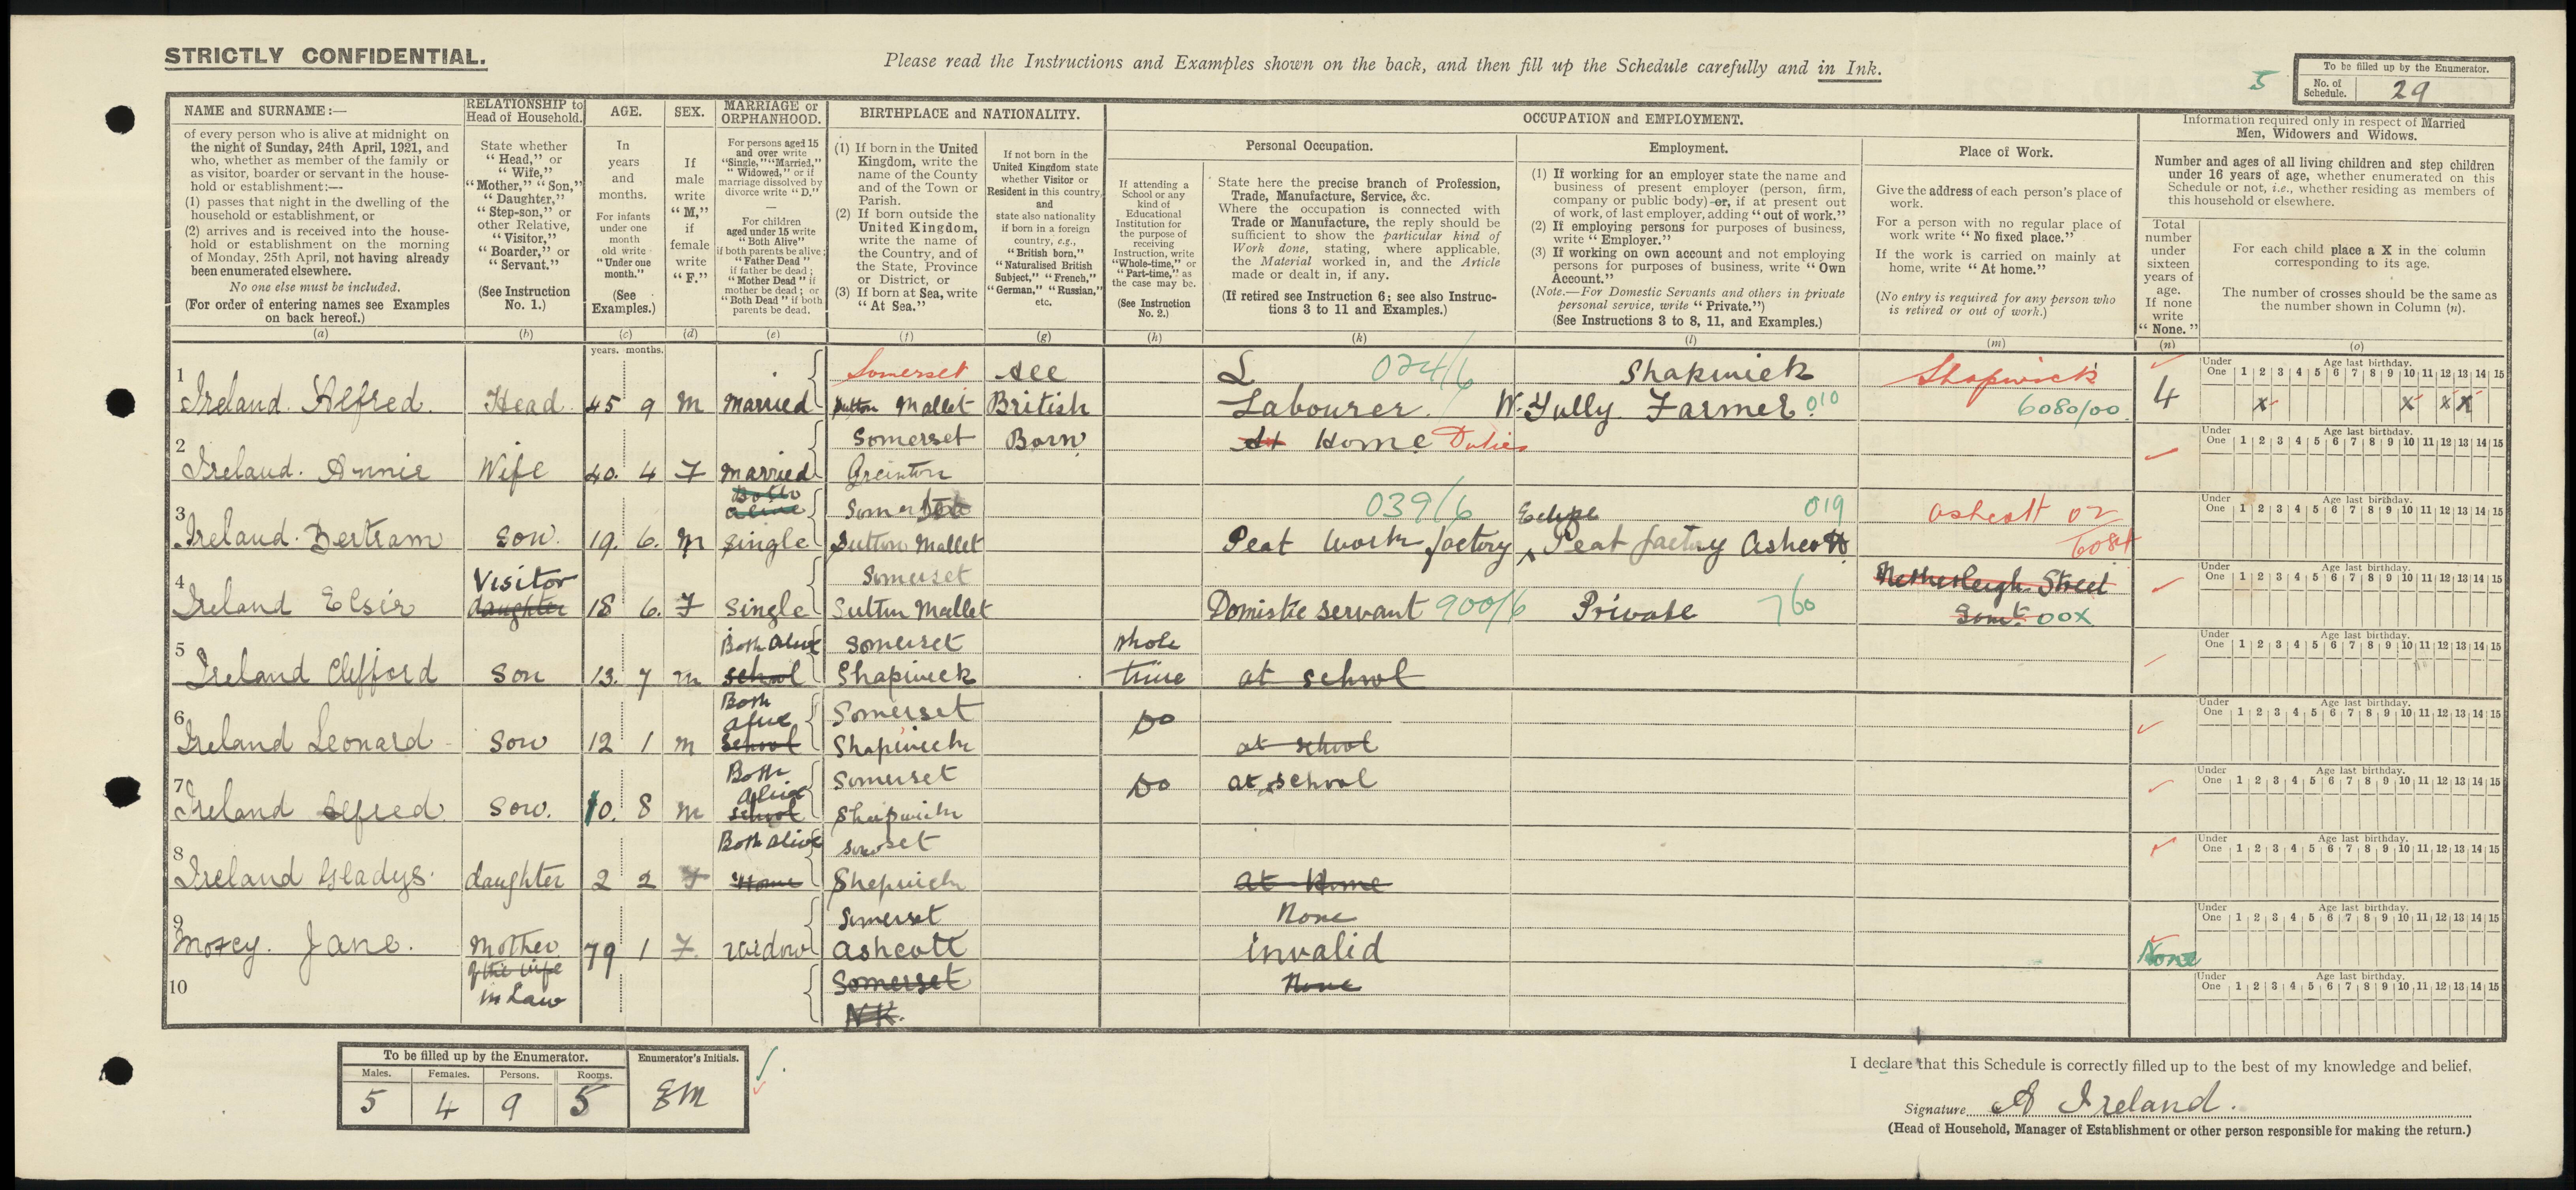 STRICTLY CONFIDENTIAL.
Please read the Instructions and Examples shown on the back, and then fill up the Schedule carefully and in Ink.
5
To be filled up by the Enumerator.
No. of Schedule. 29
NAME and SURNAME:—
of every person who is alive at midnight on
the night of Sunday, 24th April, 1921, and
who, whether as member of the family or
as visitor, boarder or servant in the house-
hold or establishment:—
(1) passes that night in the dwelling of the
household or establishment, or
(2) arrives and is received into the house-
hold or establishment on the morning
of Monday, 25th April, not having already
been enumerated elsewhere.
No one else must be included.
(For order of entering names see Examples
on back hereof.)
(a)
RELATIONSHIP to
Head of Household.
State whether
"Head," or
"Wife,"
"Mother," "Son,"
"Daughter,"
"Step-son," or
other Relative,
"Visitor,"
"Boarder," or
"Servant."
(See Instruction
No. 1.)
(b)
AGE.
In
years
and
months.
For infants
under one
month
old write
"Under one
month."
(See
Examples.)
(c)
SEX.
If
male
write
"M,"
if
female
write
"F."
(d)
MARRIAGE or
ORPHANHOOD.
For persons aged 15
and over write
"Single," "Married,"
"Widowed," or if
marriage dissolved by
divorce write "D."
For children
aged under 15 write
"Both Alive"
if both parents be alive;
"Father Dead"
if father be dead;
"Mother Dead" if
mother be dead; or
"Both Dead" if both
parents be dead.
(e)
BIRTHPLACE and NATIONALITY.
(1) If born in the United
Kingdom, write the
name of the County
and of the Town or
Parish.
(2) If born outside the
United Kingdom,
write the name of
the Country, and of
the State, Province
or District, or
(3) If born at Sea, write
"At Sea."
(f)
If not born in the
United Kingdom state
whether Visitor or
Resident in this country,
and
state also nationality
if born in a foreign
country, e.g.,
"British born,"
"Naturalised British
Subject," "French,"
"German," "Russian,"
etc.
(g)
OCCUPATION AND EMPLOYMENT.
If attending a
School or any
kind of
Educational
Institution for
the purpose of
receiving
Instruction, write
"Whole-time," or
"Part-time," as
the case may be.
(See Instruction
No. 2.)
(h)
Personal Occupation.
State here the precise branch of Profession,
Trade, Manufacture, Service, &c.
Where the occupation is connected with
Trade or Manufacture, the reply should be
sufficient to show the particular kind of
Work done, stating, where applicable,
the Material worked in, and the Article
made or dealt in, if any.
(If retired see Instruction 6; see also Instruc-
tions 3 to 11 and Examples.)
(k)
Employment.
(1) If working for an employer state the name and
business of present employer (person, firm,
company or public body) or, if at present out
of work, of last employer, adding "out of work."
(2) If employing persons for purposes of business,
write "Employer."
(3) If working on own account and not employing
persons for purposes of business, write "Own
Account."
(Note.—For Domestic Servants and others in private
personal service, write "Private.")
(See Instructions 3 to 8, 11, and Examples.)
(l)
Place of Work.
Give the address of each person's place of
work.
For a person with no regular place of
work write "No fixed place."
If the work is carried on mainly at
home, write "At home."
(No entry is required for any person who
is retired or out of work.)
(m)
Information required only in respect of Married
Men, Widowers and Widows.
Number and ages of all living children and step children
under 16 years of age, whether enumerated on this
Schedule or not, i.e., whether residing as members of
this household or elsewhere.
Total
number
under
sixteen
years of
age.
If none
write
"None."
(n)
For each child place a X in the column
corresponding to its age.
The number of crosses should be the same as
the number shown in Column (n).
(o)
years. months.
1 Somerset See L 074/6 Shapwick Shapwick
Ireland. Alfred. Head. 45 9 M Married Sutton Mallet British Labourer. W. Gully Farmer 010 6080/00 4 X X X X
Under One Age last birthday. 1 2 3 4 5 6 7 8 9 10 11 12 13 14 15
2 Somerset Born At Home Duties
Ireland. Annie Wife 40. 4 F Married Greinton
Under One Age last birthday. 1 2 3 4 5 6 7 8 9 10 11 12 13 14 15
Both alive
3 Somerset 039/6 Eclipse 019 Ashcott 02
Ireland. Bertram Son. 19. 6. M Single Sutton Mallet Peat Work factory Peat factory Ashcott 6084
Under One Age last birthday. 1 2 3 4 5 6 7 8 9 10 11 12 13 14 15
4 Visitor Somerset Netherleigh Street
Ireland Elsie daughter 18 6. F Single Sutton Mallet Domistic servant 900/6 Private 760 Somt. 00X
Under One Age last birthday. 1 2 3 4 5 6 7 8 9 10 11 12 13 14 15
5 Both Alive Somerset whole
Ireland Clifford Son 13. 7 M school Shapwick time at school
Under One Age last birthday. 1 2 3 4 5 6 7 8 9 10 11 12 13 14 15
6 Both alive Somerset Do
Ireland Leonard Son 12 1 M school Shapwick at school
Under One Age last birthday. 1 2 3 4 5 6 7 8 9 10 11 12 13 14 15
7 Both alive Somerset Do at school
Ireland Alfred Son. 10. 8 M school Shapwick
Under One Age last birthday. 1 2 3 4 5 6 7 8 9 10 11 12 13 14 15
8 Both alive Somerset
Ireland Gladys. daughter 2 2 F Home Shapwick at Home
Under One Age last birthday. 1 2 3 4 5 6 7 8 9 10 11 12 13 14 15
9 Somerset None
Moxey. Jane. Mother 79 1 F. widow Ashcott invalid None
Under One Age last birthday. 1 2 3 4 5 6 7 8 9 10 11 12 13 14 15
of the wife Somerset None
10 in Law N.K.
Under One Age last birthday. 1 2 3 4 5 6 7 8 9 10 11 12 13 14 15
To be filled up by the Enumerator. Enumerator's Initials.
Males. Females. Persons. Rooms.
5 4 9 5 EM
I declare that this Schedule is correctly filled up to the best of my knowledge and belief.
Signature A Ireland.
(Head of Household, Manager of Establishment or other person responsible for making the return.)